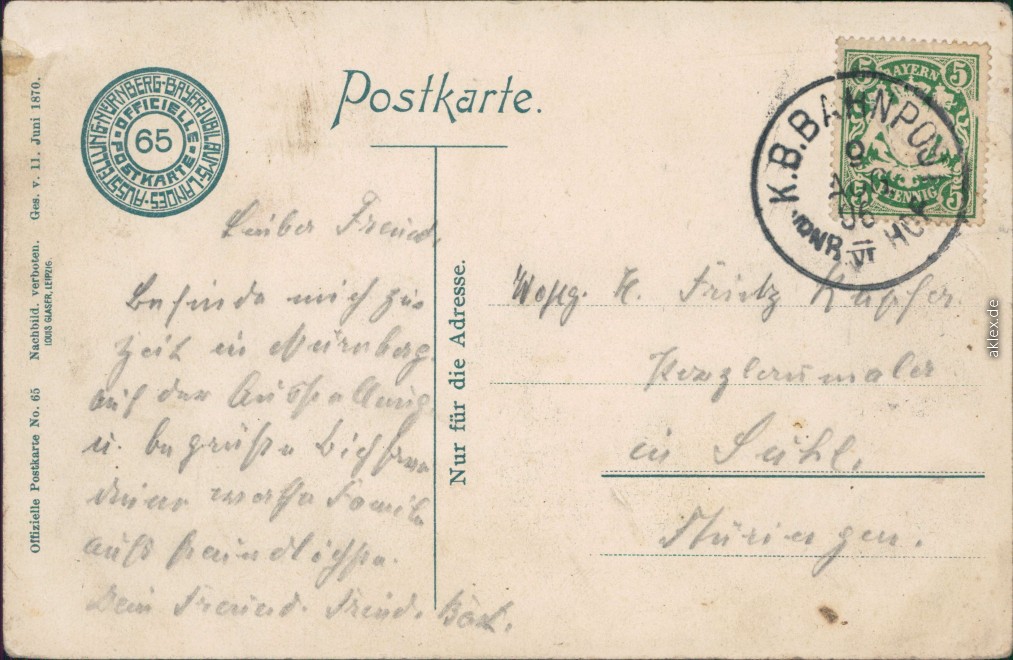 Postkarte.
AUSSTELLUNG-NÜRNBERG-BAYER-JUBILÄUMS-LANDES-
OFFICIELLE POSTKARTE
65
BAYERN
5 5
5 PFENNIG 5
K.B.BAHNPOST
9
06
HOF
VI
Offizielle Postkarte No. 65 Nachbild. verboten. Ges. v. 11. Juni 1870.
LOUIS GLASER, LEIPZIG.
Nur für die Adresse.
Lieber Freund,
Befinde mich zur
Zeit in Nürnberg
auf der Ausstellung
u. begrüße Dich
deine werthe Famile
aufs freundlichste.
Dein Freund
H. Fritz Kupfer
Porzelanmaler
in Suhl,
Thüringen.
aklex.de